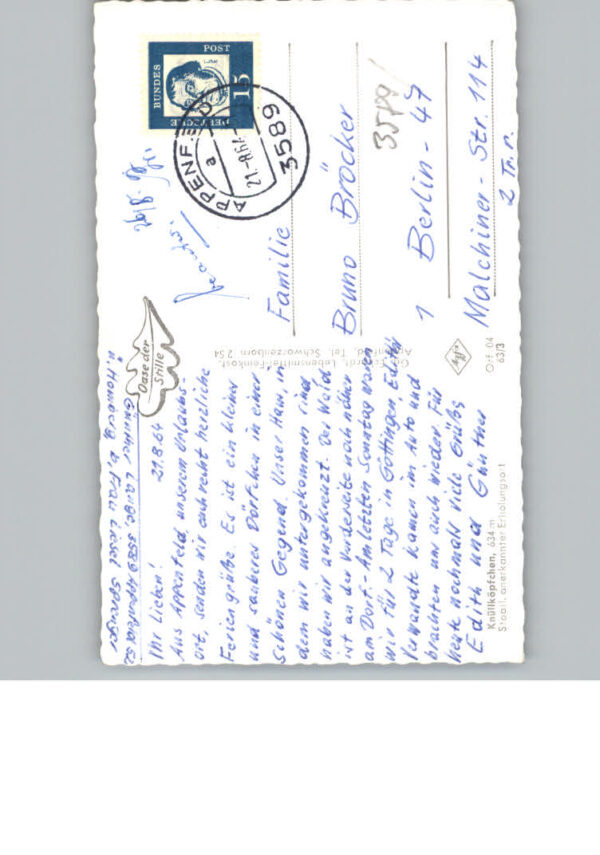 Günther Lange, 3589 Appenfeld 52
ü. Homberg b. Frau Liesel Sprenger
Oase der
Stille
21.8.64
Ihr Lieben!
Aus Appenfeld, unserem Urlaubs-
ort, senden wir euch recht herzliche
Feriengrüße. Es ist ein kleiner
und sauberes Dörfchen in einer
schönen Gegend. Unser Haus, in
dem wir untergekommen sind
haben wir angekreuzt. Der Wald
ist an der Vorderseite noch näher
am Dorf. - Am letzten Sonntag waren
wir für 2 Tage in Göttingen. Ediths
Verwandte kamen im Auto und
brachten uns auch wieder. Für
heute nochmals viele Grüße
Edith und Günther
Knüllköpfchen, 634 m
Staatl. anerkannter Erholungsort
Lebensmittel-Feinkost,
Appenfeld, Tel. Schwarzenborn 254
Agfa
63/3
DEUTSCHE
BUNDES
POST
15
APPENF
a
21.-8.64
3589
26/8.
3589/
Familie
Bruno Bröcker
1 Berlin - 47
Malchiner - Str. 114
2 Tr. r.